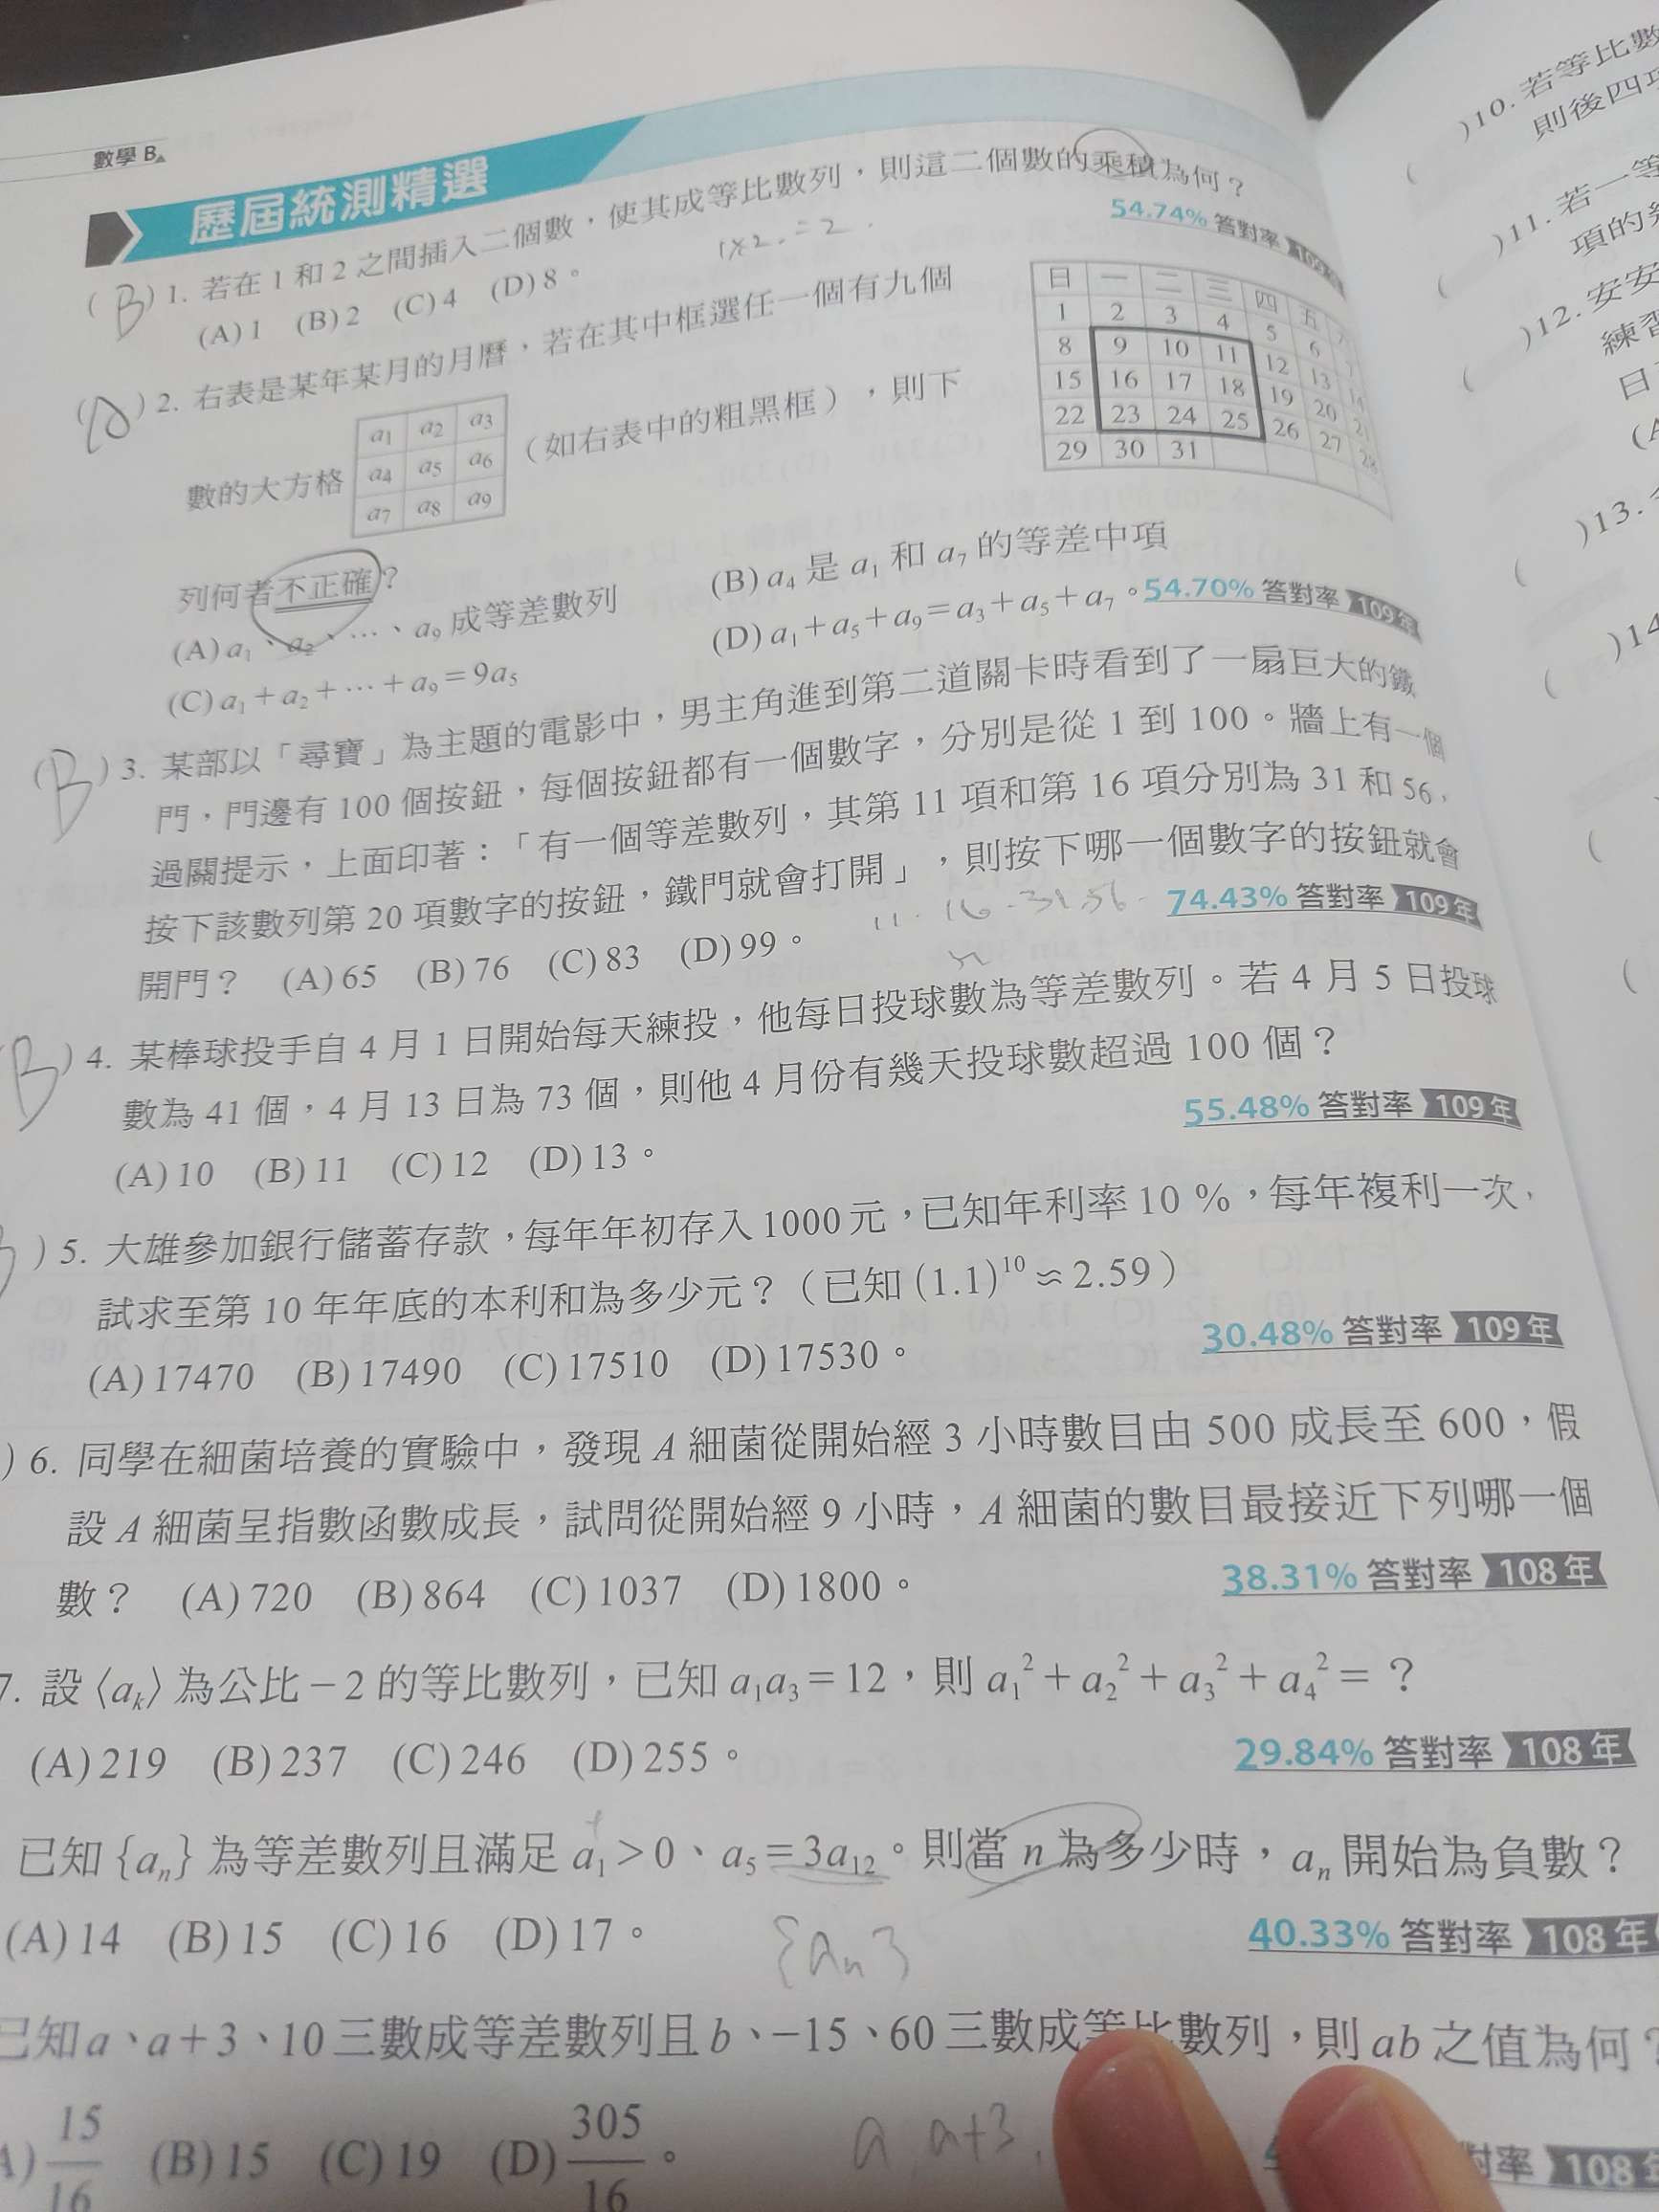 數學 B
歷屆統測精選
(B) 1. 若在 1 和 2 之間插入二個數，使其成等比數列，則這二個數的乘積為何？
1×2.=2.
54.74% 答對率 109年
(A) 1 (B) 2 (C) 4 (D) 8。
( ) 2. 右表是某年某月的月曆，若在其中框選任一個有九個
日 一 二 三 四 五 六
1 2 3 4 5 6 7
8 9 10 11 12 13 14
15 16 17 18 19 20 21
22 23 24 25 26 27 28
29 30 31
數的大方格
a₁ a₂ a₃
a₄ a₅ a₆
a₇ a₈ a₉
（如右表中的粗黑框），則下
列何者不正確？
(A) a₁、a₂、⋯、a₉ 成等差數列 (B) a₄ 是 a₁ 和 a₇ 的等差中項
(C) a₁＋a₂＋⋯＋a₉＝9a₅ (D) a₁＋a₅＋a₉＝a₃＋a₅＋a₇。54.70% 答對率 109年
(B) 3. 某部以「尋寶」為主題的電影中，男主角進到第二道關卡時看到了一扇巨大的鐵
門，門邊有 100 個按鈕，每個按鈕都有一個數字，分別是從 1 到 100。牆上有一個
過關提示，上面印著：「有一個等差數列，其第 11 項和第 16 項分別為 31 和 56，
按下該數列第 20 項數字的按鈕，鐵門就會打開」，則按下哪一個數字的按鈕就會
開門？ (A) 65 (B) 76 (C) 83 (D) 99。
11. 16. 31.56.
74.43% 答對率 109年
(B) 4. 某棒球投手自 4 月 1 日開始每天練投，他每日投球數為等差數列。若 4 月 5 日投球
數為 41 個，4 月 13 日為 73 個，則他 4 月份有幾天投球數超過 100 個？
(A) 10 (B) 11 (C) 12 (D) 13。
55.48% 答對率 109年
) 5. 大雄參加銀行儲蓄存款，每年年初存入 1000 元，已知年利率 10 %，每年複利一次，
試求至第 10 年年底的本利和為多少元？（已知 (1.1)¹⁰≈2.59）
(A) 17470 (B) 17490 (C) 17510 (D) 17530。
30.48% 答對率 109年
) 6. 同學在細菌培養的實驗中，發現 A 細菌從開始經 3 小時數目由 500 成長至 600，假
設 A 細菌呈指數函數成長，試問從開始經 9 小時，A 細菌的數目最接近下列哪一個
數？ (A) 720 (B) 864 (C) 1037 (D) 1800。
38.31% 答對率 108年
7. 設⟨aₖ⟩為公比－2 的等比數列，已知 a₁a₃＝12，則 a₁²＋a₂²＋a₃²＋a₄²＝？
(A) 219 (B) 237 (C) 246 (D) 255。
29.84% 答對率 108年
已知 {aₙ} 為等差數列且滿足 a₁＞0、a₅＝3a₁₂。則當 n 為多少時，aₙ 開始為負數？
(A) 14 (B) 15 (C) 16 (D) 17。
{aₙ}
40.33% 答對率 108年
已知 a、a＋3、10 三數成等差數列且 b、－15、60 三數成等比數列，則 ab 之值為何？
A) 15/16 (B) 15 (C) 19 (D) 305/16。
a, a+3,
對率 108年
)10. 若等比數
則後四項
)11. 若一等
項的
)12. 安安
練習
日
(A
)13.
)14